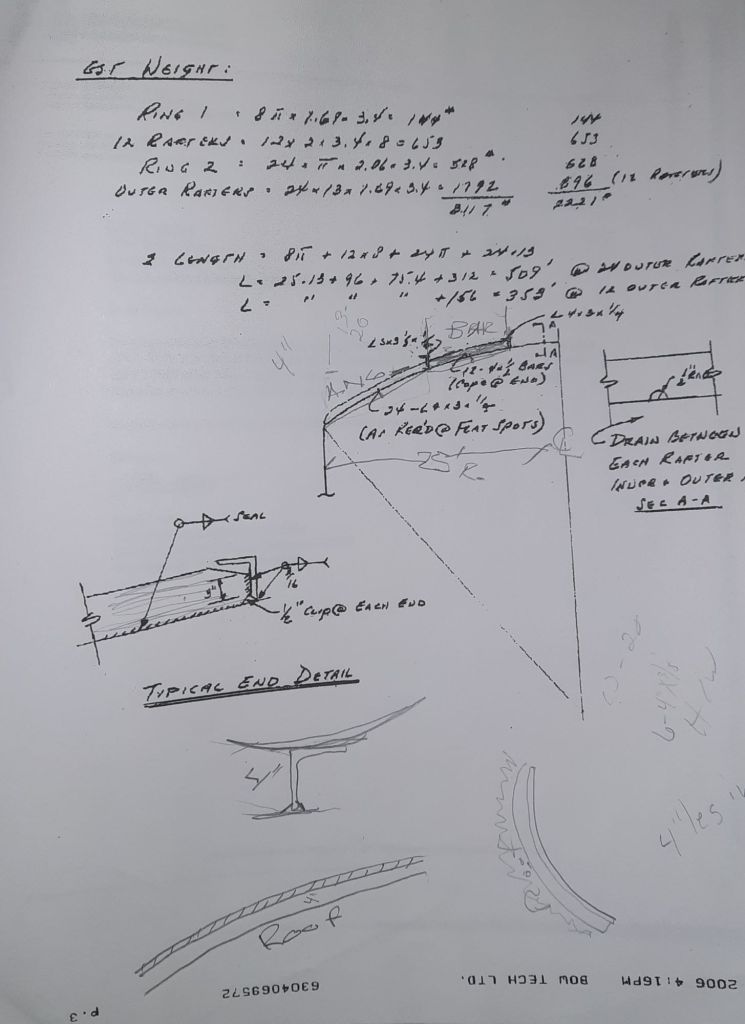 EST WEIGHT:
RING 1 = 8π × 1.69 × 3.4 = 144# 144
12 RAFTERS = 12 × 2 × 3.4 × 8 = 653 653
RING 2 = 24 × π × 2.06 × 3.4 = 528#. 528
OUTER RAFTERS = 24 × 13 × 1.69 × 3.4 = 1792 896 (12 RAFTERS)
3117# 2221#
LENGTH = 8π + 12×8 + 24π + 24·13
L = 25.13 + 96 + 75.4 + 312 = 509' @ 24 OUTER RAFTER
L = " " " +156 = 353' @ 12 OUTER RAFTER
L 4×3×1/4
BAR
4"
ANG
A
A
12 - 4×1/2 BARS
(COPE @ END)
24 - L4×3×1/4
(AS REQ'D @ FLAT SPOTS)
25' R.
DRAIN BETWEEN
EACH RAFTER
INNER & OUTER
SEC A-A
SEAL
3"
3/16
1/2" CLIP @ EACH END
TYPICAL END DETAIL
Roof
4"
Roof
2006 4:16PM BOW TECH LTD. 6304069572
p.3